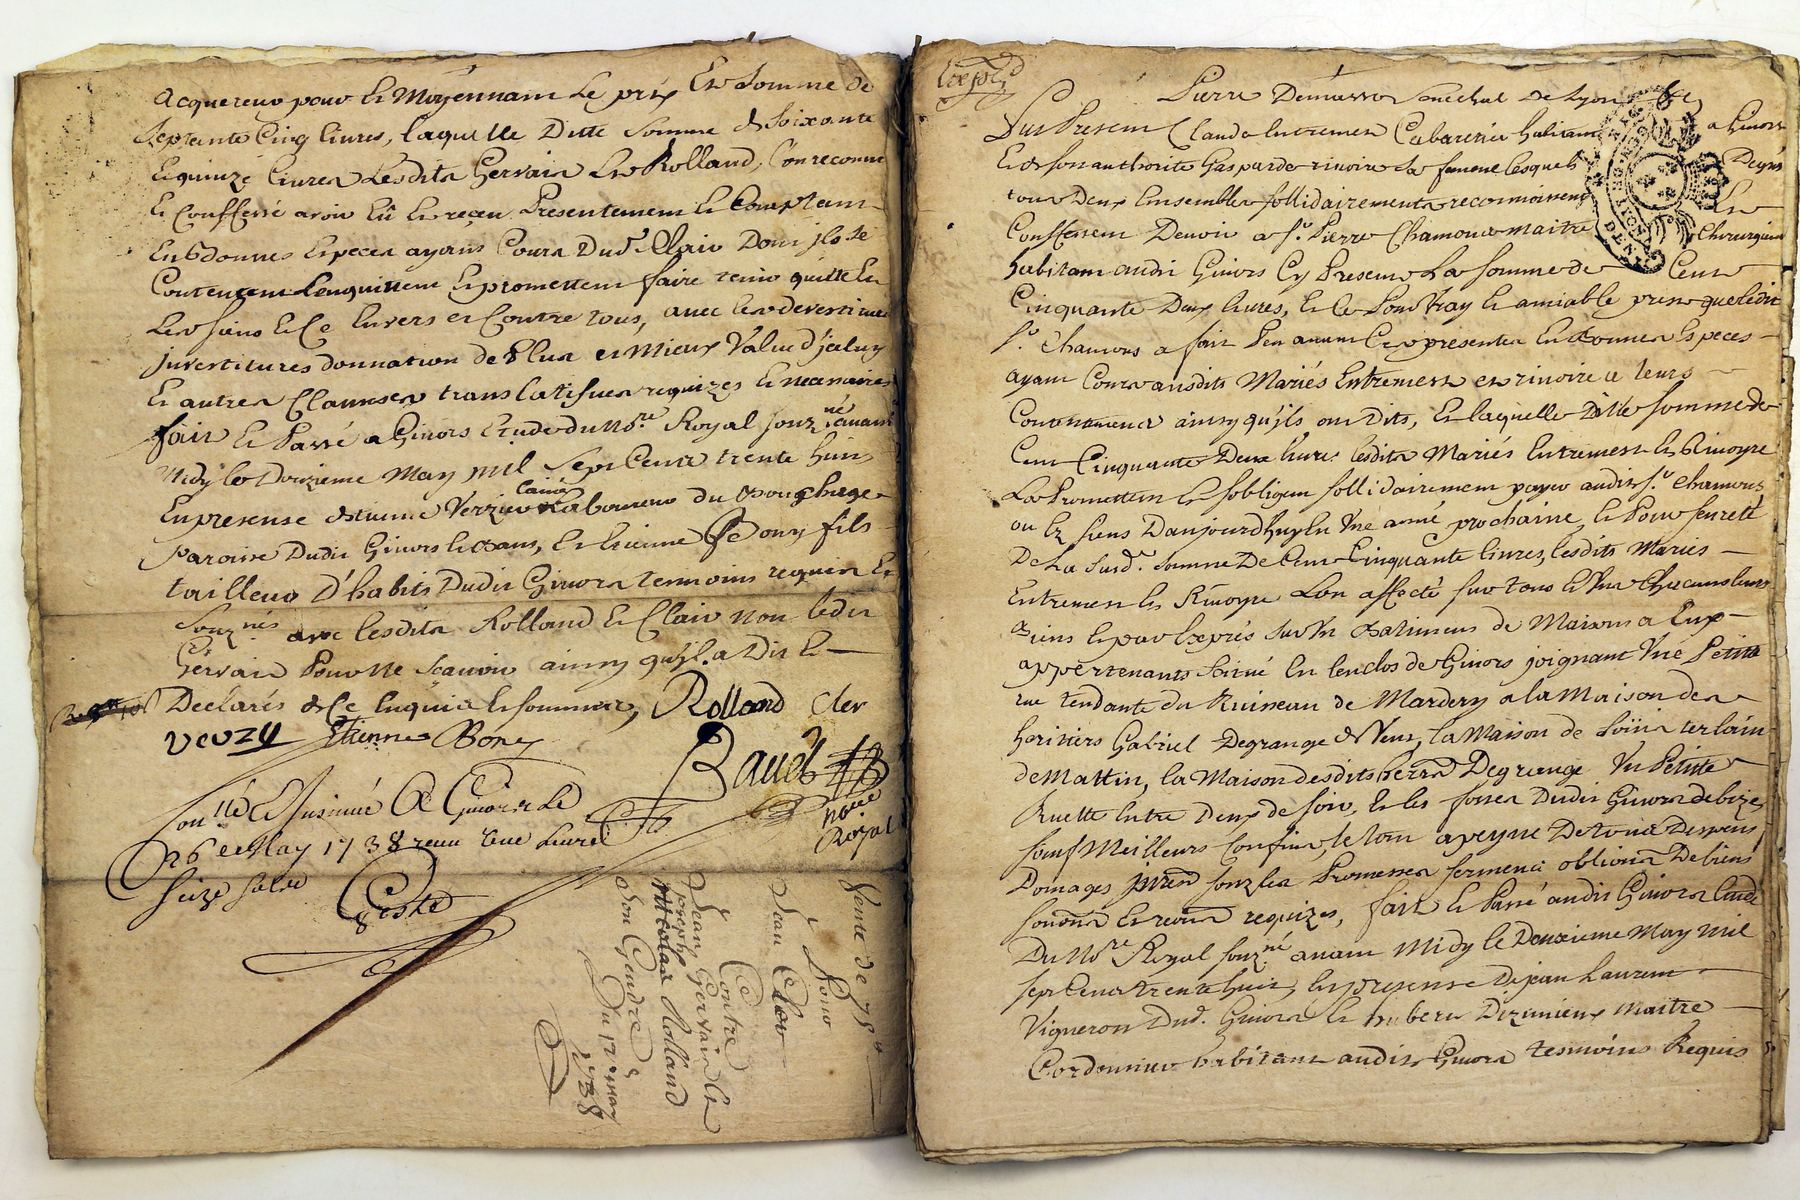 acquereur pour et Moyennant Le prix Et Somme de
Septante Cinq livres, laquelle Ditte Somme de Soixante
Et quinze livres Lesdits Gervais Et Rolland, ont reconnu
Et Confessé avoir Eû Et reçeu Presentement Et Comptant
En bonnes Especes ayants Cours Dud. Clair Dont ils Se
Contentent Lenquittent Et promettent faire tenir quitte Et
Les Siens Et Ce Envers et Contre tous, avec les devestitures
investitures donnation de Plus et Mieux Value d'jceluy
Et autres Clauses translatives requizes Et necessaires
fait Et Passé a Givors Etude du No.re Royal souz.né avant
Midy le Douzieme May Mil Sept Cents trente huit
En presense d'Etienne Verzieu Laboureur du
Caine
Paroisse Dudit Givors Et Bans, Et Etienne Bony fils
tailleur D'habits Dudit Givors temoins requis Et
Souz.nés avec lesdits Rolland Et Clair non ledit
Gervais Pour ne Scavoir ainsy qu'jl a Dit Et
Declaré de Ce Enquis Et Sommé, Rolland Cler
Verzy Etienne Bony
Baud
no.re
Royal
Con.llé Et Insinué A Givors Le
26 e May 1738 receu une livre
Seize sols
Geste
Vente de 75 ll
Pour
Jean Cler
Contre
Jean Gervais Et
Joseph
Nicolas Rolland
Son Gendre
Du 12e may
1738
Exp.d
Pierre Demasso Senéchal de Lyon &c
Sus Present Claude Entremen Cabaretier habitant a Givors
Et de Son authorité Gasparde rivoire Sa femme lesquels De grés
tous Deux Ensemble sollidairement reconnoissent Et
Confessent Devoir a S.r Pierre Chamous maitre Chirurgien
habitant audit Givors Cy Present La Somme de Cent
Cinquante Deux livres, Et Ce Pour Vray Et amiable prest que ledit
S.r Chamous a fait Peu avant Ces presentes En bonnes Especes
ayant Cours ausdits Mariés Entremen et rivoire a leurs
Contentement ainsy qu'ils ont Dits, Et laquelle Ditte Somme de
Cent Cinquante Deux livres lesdits Mariés Entremen Et Rivoyre
Promettent Et Sobligent sollidairement payer audit S.r Chamous
ou Ez Siens Danjourdhuy En Une année prochaine, Et Pour seureté
De La Susd.e Somme De Cent Cinquante livres, lesdits Mariés
Entremen Et Rivoyre Lon affecté sur tous Et Uns Chacuns leurs
Biens Et par Exprés Sur Un Batiment de Maison a Eux
appertenants Scitué En lenclos de Givors joignant Une Petitte
rue tendante du Ruisseau de Mardery a la Maison des
heritiers Gabriel Degrange de Vent, la Maison de
de Mattin, la Maison desdits herrs Degrange Un Petitte
Ruette Entre Deux de Soir, Et les fossés Dudit Givors de bize
sauf Meilleurs Confins, le tout a peyne De tous Despens
Domages souz les Promesses serment oblions De biens
requizes, fait Et Passé audit Givors Etude
Du No.re Royal souz.né avant Midy le Deuxieme May Mil
Sept Cents trente huit, En presense De jean Laurent
Vigneron Dud. Givors Et huber Dizimieux Maitre
Cordonnier habitant audit Givors temoins Requis